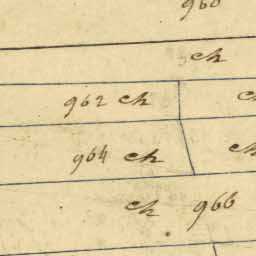 960
ch
962 ch
ch
964 ch
ch
ch 966